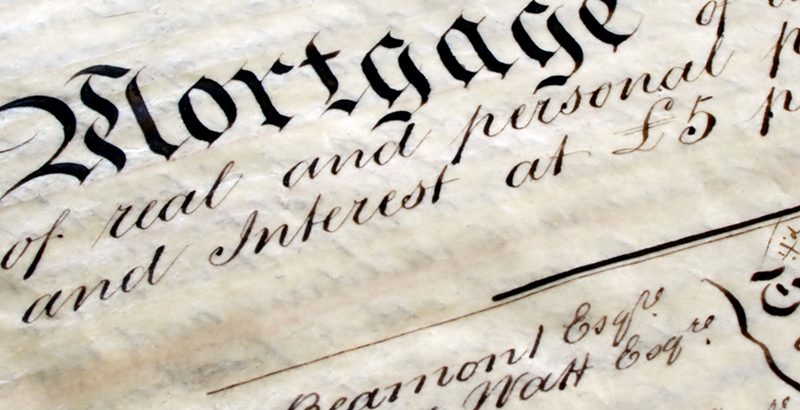 Mortgage of
of real and personal p
and Interest at £5 p
Beamont Esqre
Watt Esqre